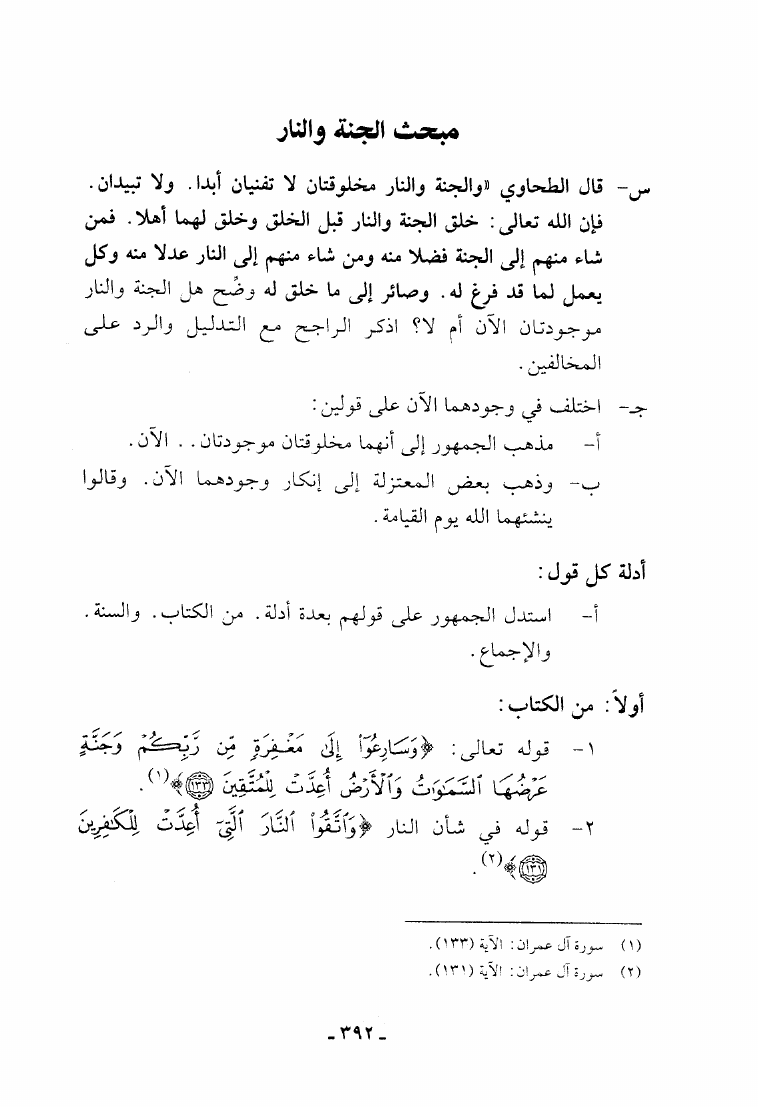 مبحث الجنة والنار
س- قال الطحاوي «والجنة والنار مخلوقتان لا تفنيان أبدا. ولا تبيدان.
فإن الله تعالى: خلق الجنة والنار قبل الخلق وخلق لهما أهلا. فمن
شاء منهم إلى الجنة فضلا منه ومن شاء منهم إلى النار عدلا منه وكل
يعمل لما قد فرغ له. وصائر إلى ما خلق له وضّح هل الجنة والنار
موجودتان الآن أم لا؟ اذكر الراجح مع التدليل والرد على
المخالفين.
جـ- اختلف في وجودهما الآن على قولين:
أ- مذهب الجمهور إلى أنهما مخلوقتان موجودتان.. الآن.
ب- وذهب بعض المعتزلة إلى إنكار وجودهما الآن. وقالوا
ينشئهما الله يوم القيامة.
أدلة كل قول:
أ- استدل الجمهور على قولهم بعدة أدلة. من الكتاب. والسنة.
والإجماع.
أولاً: من الكتاب:
١- قوله تعالى: ﴿وَسَارِعُوٓا۟ إِلَىٰ مَغْفِرَةٍ مِّن رَّبِّكُمْ وَجَنَّةٍ
عَرْضُهَا ٱلسَّمَٰوَٰتُ وَٱلْأَرْضُ أُعِدَّتْ لِلْمُتَّقِينَ ١٣٣﴾(١).
٢- قوله في شأن النار ﴿وَٱتَّقُوا۟ ٱلنَّارَ ٱلَّتِىٓ أُعِدَّتْ لِلْكَٰفِرِينَ
١٣١﴾(٢).
(١) سورة آل عمران: الآية (١٣٣).
(٢) سورة آل عمران: الآية (١٣١).
- ٣٩٢ -